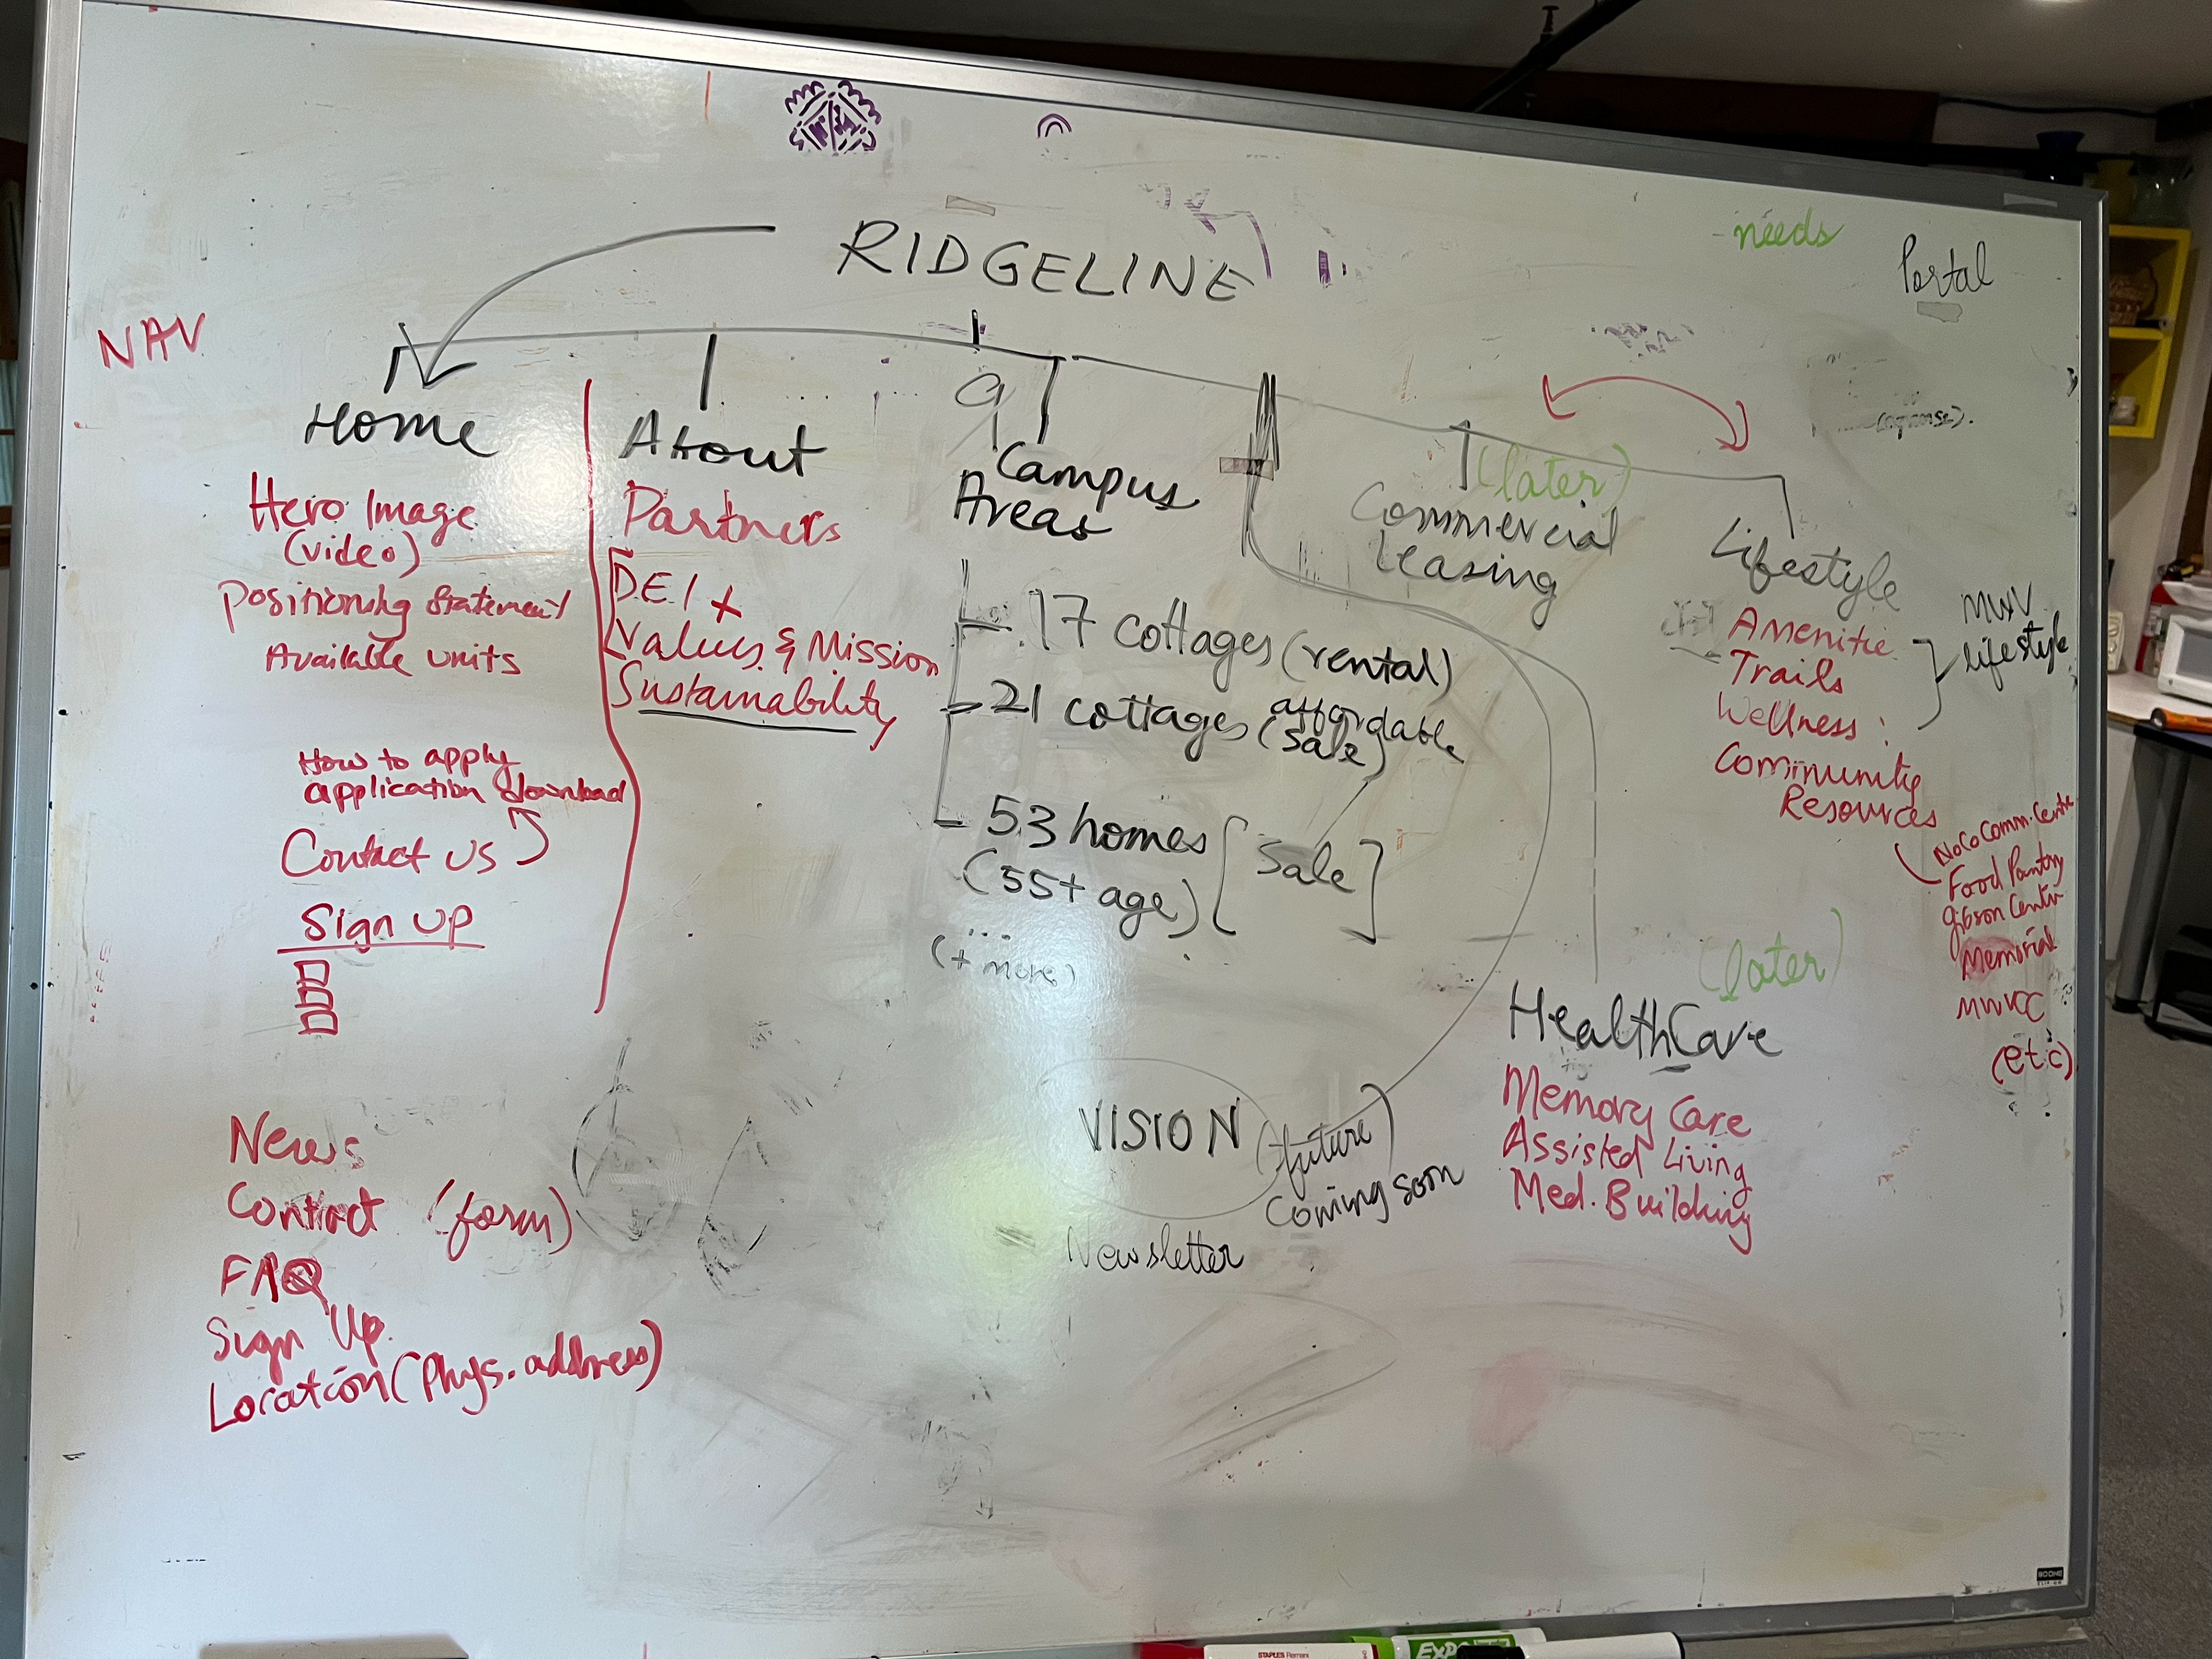 needs
Portal
RIDGELINE
NAV
Home
Hero Image
(video)
Positioning Statement
Available units
How to apply
application download
Contact us
Sign up
About
Partners
DEI +
Values & Mission
Sustainability
Campus
Areas
17 cottages (rental)
21 cottages affordable
(sale)
53 homes [Sale]
(55+ age)
(+ more)
(later)
Commercial
Leasing
Lifestyle
Amenitie
Trails
Wellness
Community
Resources
MWV
lifestyle
NoCo Comm. Centre
Food Pantry
Gibson Center
Memorial
MWVCC
(etc)
(later)
HealthCare
Memory Care
Assisted Living
Med. Building
VISION (future)
Coming soon
Newsletter
News
Contact (form)
FAQ
Sign Up
Location (Phys. address)
BOONE
STAPLES
EXPO